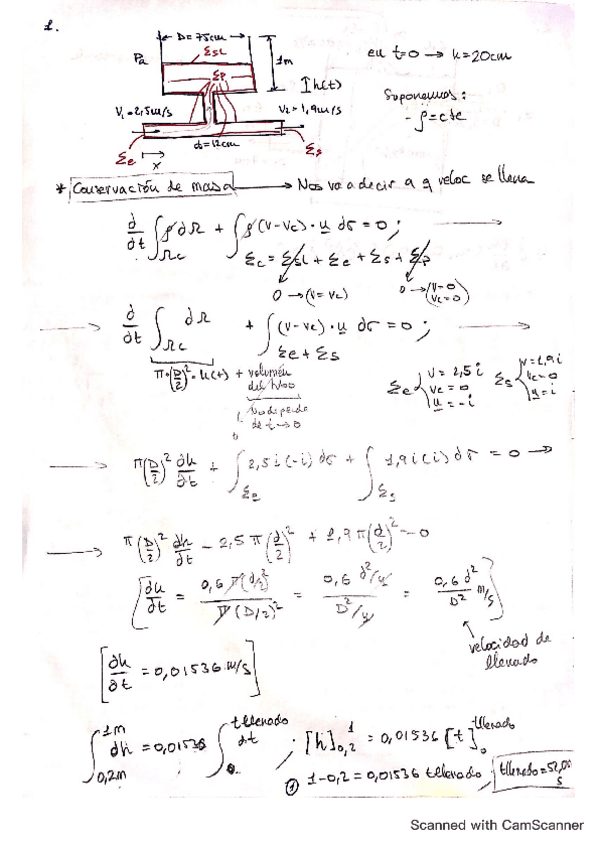 1.
D = 75cm
ΣSL
Pa
1m
en t=0 → h=20cm
ΣP
h(t)
Suponemos:
V₁=2,5m/s
V₂=1,9m/s
- ρ=cte
d=12cm
Σe
x
Σs
* Conservación de masa → Nos va a decir a q veloc se llena
d/dt ∫Ωc ρ dΩ + ∫ ρ(v-vc)·u dσ = 0 ; →
Σc = ΣSL + Σe + Σs + ΣP
0 → (v=vc)
0 → (v=0 vc=0)
→ d/dt ∫Ωc dΩ + ∫Σe+Σs (v-vc)·u dσ = 0 ; →
π·(D/2)²·h(t) + volumen del tubo
No depende de t → 0
Σe { v = 2,5 i
vc = 0
u = -i
Σs { v=1,9 i
vc=0
u=i
→ π(D/2)² dh/dt + ∫Σe 2,5 i(-i) dσ + ∫Σs 1,9 i(i) dσ = 0 →
→ π(D/2)² dh/dt - 2,5 π(d/2)² + 1,9 π(d/2)² = 0
[ ∂h/∂t = 0,6 π(d/2)² / π(D/2)² = 0,6 d²/4 / D²/4 = 0,6 d²/D² m/s ]
velocidad de
llenado
[ ∂h/∂t = 0,01536 m/s ]
∫0,2m 1m dh = 0,01536 ∫0 tllenado dt ; [h]0,2 1 = 0,01536 [t]0 tllenado
① 1-0,2 = 0,01536 tllenado ;
Scanned with CamScanner